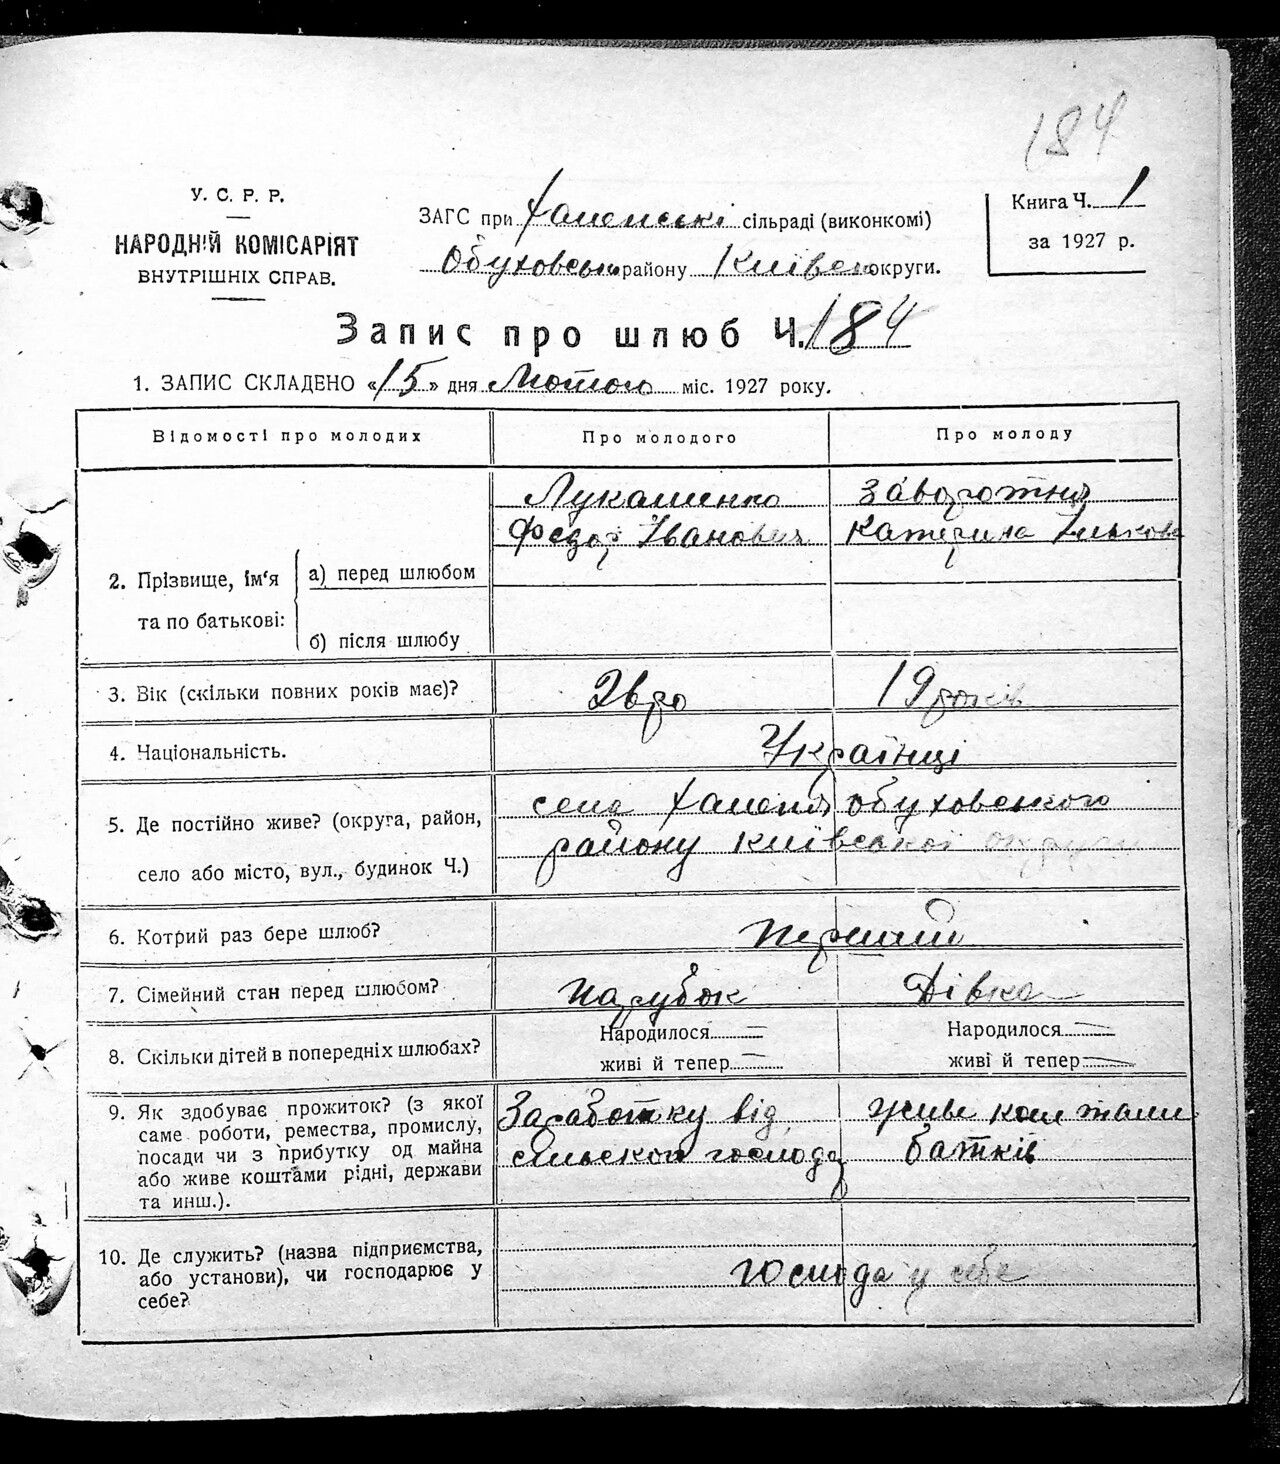 184
У. С. Р. Р.
НАРОДНІЙ КОМІСАРІЯТ
ВНУТРІШНІХ СПРАВ.
ЗАГС при Халепські сільраді (виконкомі)
Обуховськ району Київськ округи.
Книга Ч. 1
за 1927 р.
Запис про шлюб Ч. 184
1. ЗАПИС СКЛАДЕНО «15» дня Лютого міс. 1927 року.
Відомості про молодих
Про молодого
Про молоду
2. Прізвище, ім'я
та по батькові:
а) перед шлюбом
б) після шлюбу
Лукашенко
Федор Іванович
Заворотня
Катерина
3. Вік (скільки повних років має)?
19 років
4. Національність.
Українці
5. Де постійно живе? (округа, район,
село або місто, вул., будинок Ч.)
села Халепя обуховського
району Київської округи
6. Котрий раз бере шлюб?
Перший
7. Сімейний стан перед шлюбом?
Парубок
Дівка
8. Скільки дітей в попередніх шлюбах?
Народилося —
живі й тепер —
Народилося —
живі й тепер —
9. Як здобуває прожиток? (з якої
саме роботи, ремества, промислу,
посади чи з прибутку од майна
або живе коштами рідні, держави
та инш.).
Заработку від
сільского господа
живе коштами
батків
10. Де служить? (назва підприємства,
або установи), чи господарює у
себе?
господа у себе